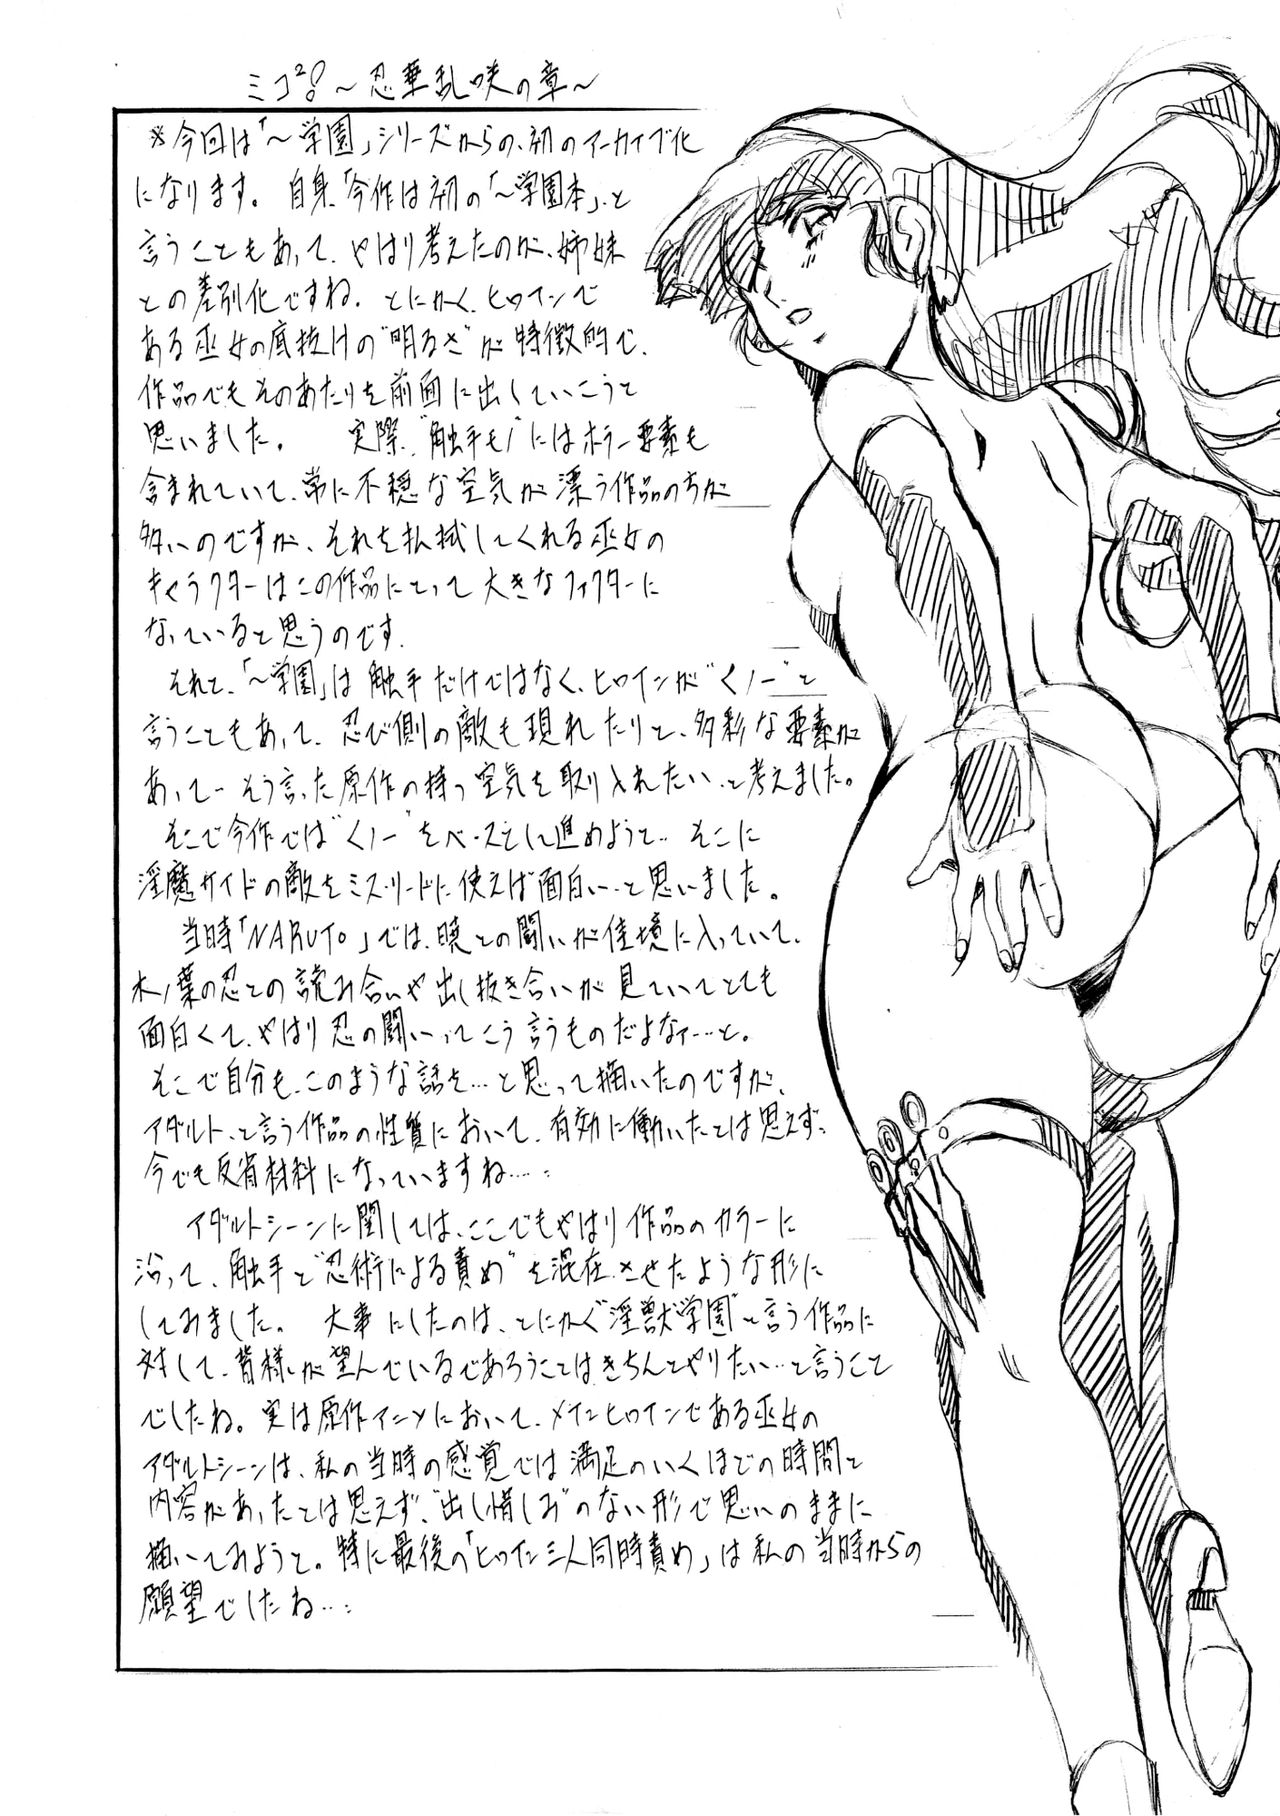 ミコ²！～忍華乱咲の章～
※今回は「～学園」シリーズからの、初のアーカイブ化
になります。自身、今作は初の「～学園本」、と
言うこともあって、やはり考えたのが、姉妹
との差別化ですね。とにかく、ヒロインで
ある巫女の底抜けの“明るさ”が特徴的で、
作品でもそのあたりを前面に出していこうと
思いました。実際、“触手モノ”にはホラー要素も
含まれていて、常に不穏な空気が漂う作品の方が
多いのですが、それを払拭してくれる巫女の
キャラクターはこの作品にとって大きなファクターに
なっていると思うのです。
それと、「～学園」は触手だけではなく、ヒロインが“くノ一”と
言うこともあって、忍び側の敵も現れたりと、多彩な要素が
あって…そう言った原作の持つ空気を取り入れたい、と考えました。
そこで今作では“くノ一”をベースとして進めようと…そこに
淫魔サイドの敵をミスリードに使えば面白い…と思いました。
当時「NARUTO」では、暁との闘いが佳境に入っていて、
木ノ葉の忍との読み合いや出し抜き合いが見ていてとても
面白くて、やはり忍の闘いってこう言うものだよなァ…と。
そこで自分も、このような話を…と思って描いたのですが、
アダルト、と言う作品の性質において、有効に働いたとは思えず…
今でも反省材料になっていますね…：
アダルトシーンに関しては、ここでもやはり作品のカラーに
沿って、触手と“忍術による責め”を混在させたような形に
してみました。大事にしたのは、とにかく“淫獣学園”と言う作品に
対して、皆様が望んでいるであろうことはきちんとやりたい…と言うこと
でしたね。実は原作アニメにおいて、メインヒロインである巫女の
アダルトシーンは、私の当時の感覚では満足のいくほどの時間と
内容があったとは思えず、“出し惜しみ”のない形で思いのままに
描いてみようと。特に最後の「ヒロイン三人同時責め」は私の当時からの
願望でしたね…：